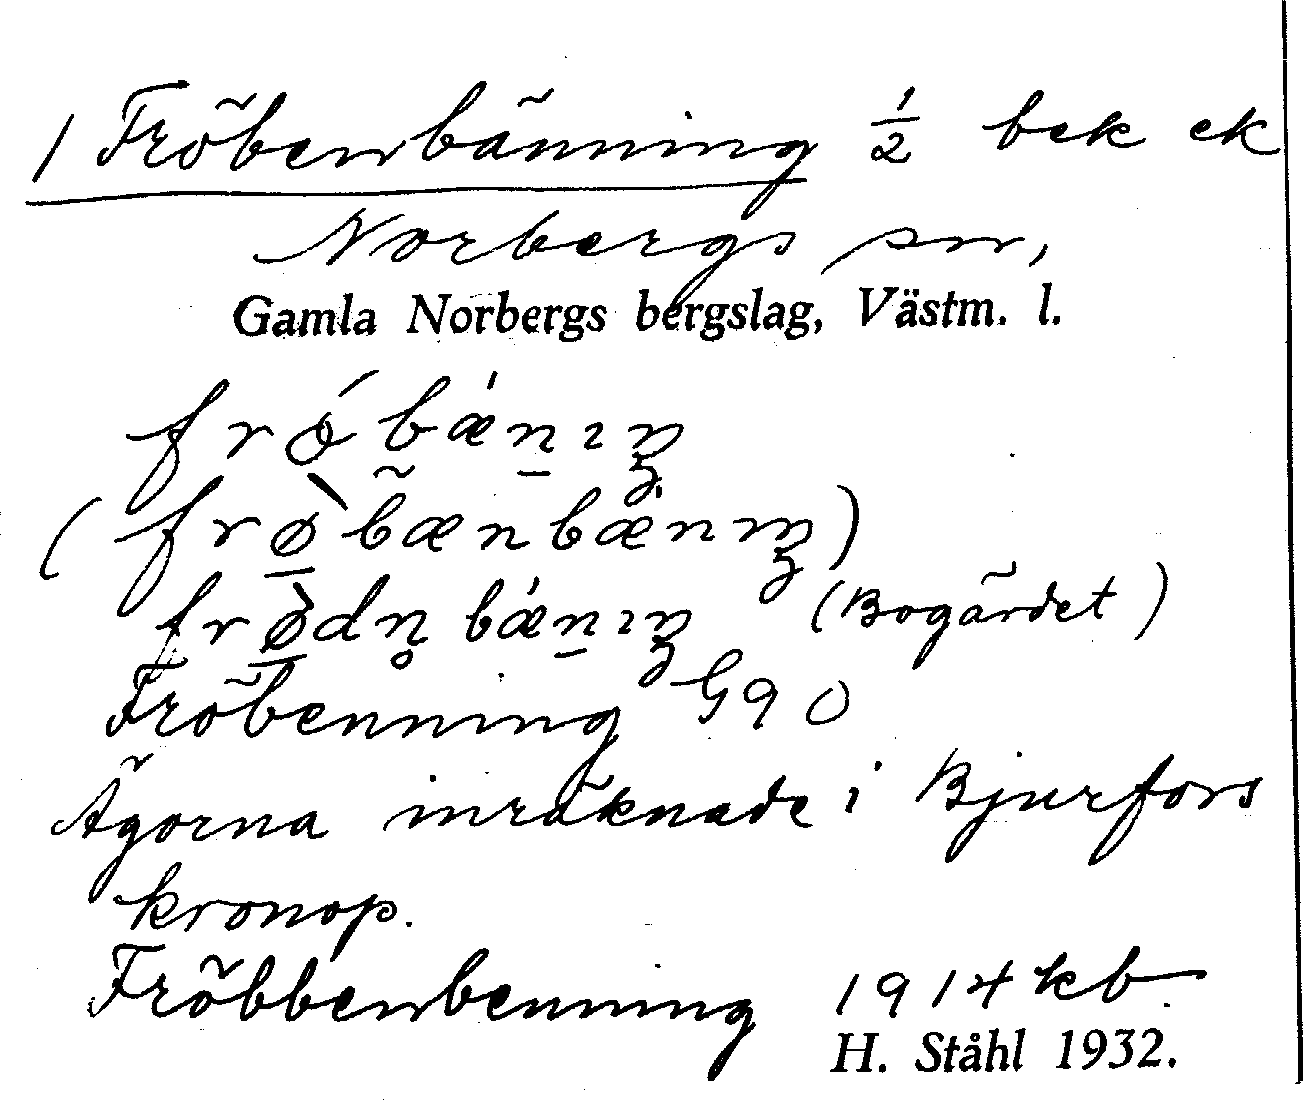 1 Fröbenbänning 1/2 bek ek
Norbergs sn,
Gamla Norbergs bergslag, Västm. l.
frǿbǽn̲ıŋ
(frø̲̀bænbǽnıŋ)
frø̲̀dn̥ bǽn̲ıŋ (Bogärdet)
Fröbenning G90
Ägorna inräknade i Bjurfors
kronop.
Fröbbenbenning 1914 kb.
H. Ståhl 1932.